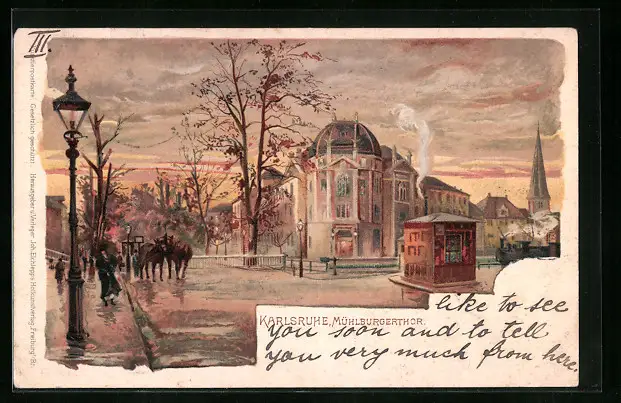 III.
Künstlerpostkarte. Gesetzlich geschützt. Herausgeber u. Verleger Joh. Elchlepp's Hofkunstverlag, Freiburg i. B.
KARLSRUHE, MÜHLBURGERTHOR.
like to see
you soon and to tell
you very much from here.